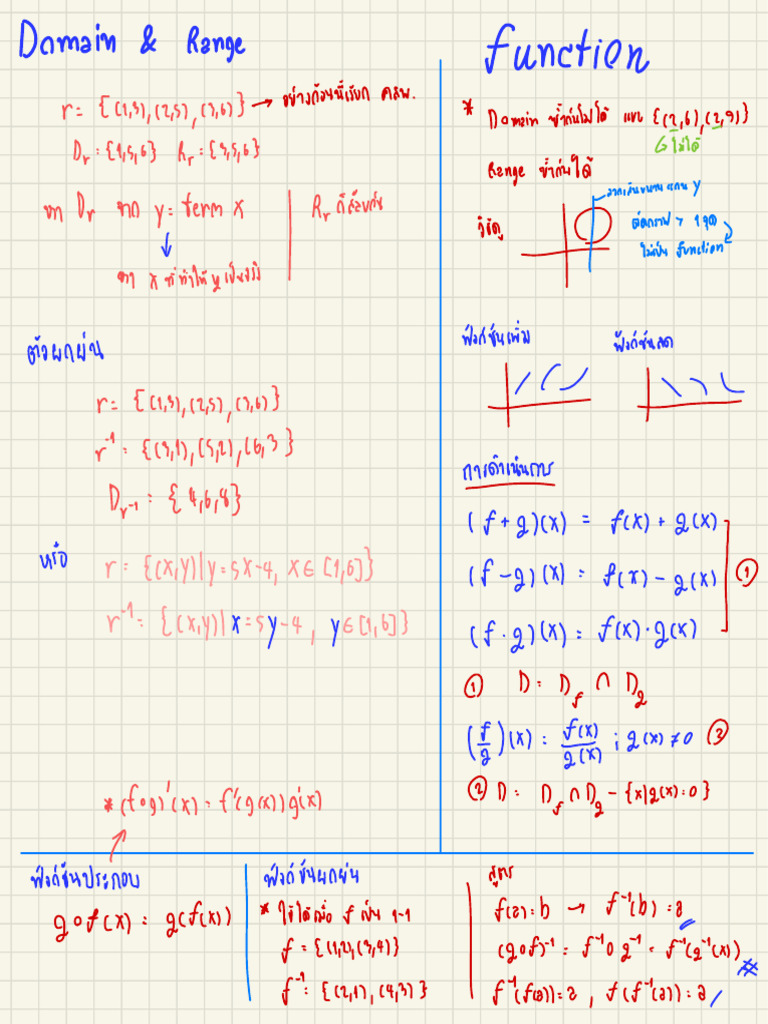 Domain & Range
r = {(1,3),(2,5),(3,6)} → อย่างก้อนนี้เรียก คสพ.
Dr = {1,5,6} Rr = {3,5,6}
หา Dr จาก y = term x
Rr ก็สลับกัน
หา x ที่ทำให้ y เป็นจริง
ตัวผกผัน
r = {(1,3),(2,5),(3,6)}
r⁻¹ = {(3,1),(5,2),(6,3}
Dr⁻¹ = {4,6,8}
หรือ
r = {(x,y)|y = 5x-4, x ∈ [1,6]}
r⁻¹ = {(x,y)|x = 5y-4, y ∈ [1,6]}
*(fog)'(x) = f'(g(x))g'(x)
function
* Domain ซ้ำกันไม่ได้ แบบ {(2,6),(2,9)}
ไม่ได้
Range ซ้ำกันได้
วิธีดู
ลากเส้นขนานแกน y
ตัดกราฟ > 1 จุด
ไม่เป็น function
ฟังก์ชันเพิ่ม
ฟังก์ชันลด
การดำเนินการ
(f+g)(x) = f(x) + g(x)
(f-g)(x) = f(x) - g(x) ①
(f·g)(x) = f(x)·g(x)
① D = Df ∩ Dg
(f/g)(x) = f(x)/g(x) ; g(x) ≠ 0 ②
② D = Df ∩ Dg - {x|g(x)=0}
ฟังก์ชันประกอบ
gof(x) = g(f(x))
ฟังก์ชันผกผัน
* ใช้ได้เมื่อ f เป็น 1-1
f = {(1,2),(3,4)}
f⁻¹ = {(2,1),(4,3)}
สูตร
f(a) = b → f⁻¹(b) = a
(gof)⁻¹ = f⁻¹og⁻¹ = f⁻¹(g⁻¹(x))
f⁻¹(f(a)) = a , f(f⁻¹(a)) = a